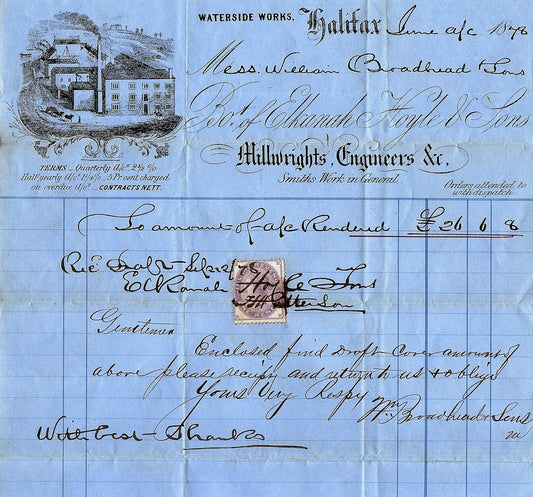 WATERSIDE WORKS. Halifax June a/c 1878
Mess. William Broadhead & Sons
Bot. of Elkanah Hoyle & Sons
Millwrights, Engineers &c.
Smiths Work in General.
Orders attended to
with dispatch.
TERMS _ Quarterly a/cs. 2½ %
Half-yearly a/cs 1¼% _ 5 Pr cent charged
on overdue a/cs _ CONTRACTS NETT.
To amount of a/c Rendered £26 6 8
Elkanah Hoyle & Sons
Gentlemen
Enclosed find Draft Cover amount of
above please receipt and return to us & oblige
Yours Very Respy
Wm Broadhead & Sons
With best Thanks